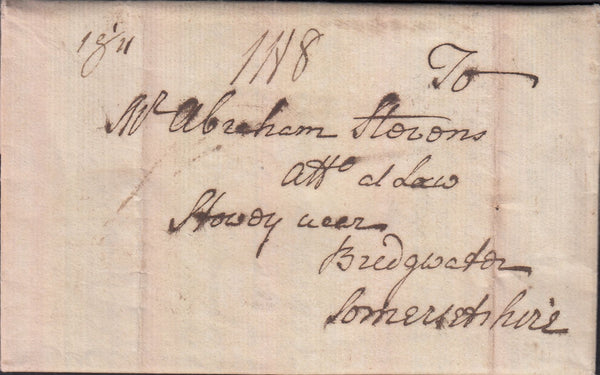 To
Mr Abraham Stevens
Atto at Law
Stowey near
Bredgwater
Somersetshire